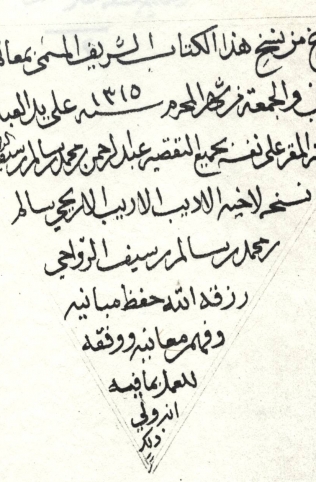 من نسخ هذا الكتاب الشريف المسمى بمعا
والجمعة من شهر المحرم سنة ١٣١٥ على يد العبد
المقر على نفسه بجميع التقصير عبد الرحمن بن محمد بن سالم بن سيف
نسخه لاخيه الاديب الاريب الاريحي سالم
بن محمد بن سالم بن سيف الرواحي
رزقه الله حفظ مبانيه
وفهم معانيه ووفقه
للعمل بما فيه
انه ولي
ذلك